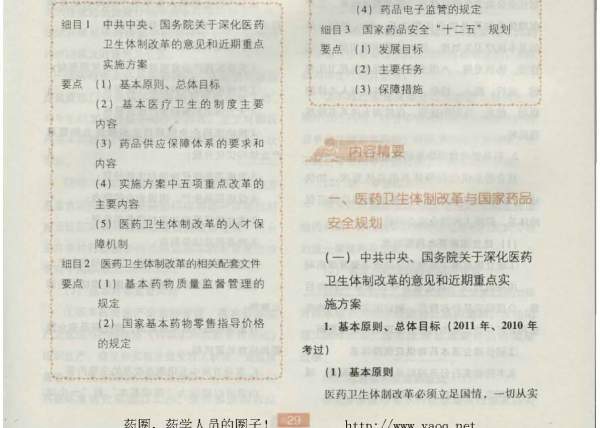 细目1 中共中央、国务院关于深化医药
卫生体制改革的意见和近期重点
实施方案
要点 (1) 基本原则、总体目标
(2) 基本医疗卫生的制度主要
内容
(3) 药品供应保障体系的要求和
内容
(4) 实施方案中五项重点改革的
主要内容
(5) 医药卫生体制改革的人才保
障机制
细目2 医药卫生体制改革的相关配套文件
要点 (1) 基本药物质量监督管理的
规定
(2) 国家基本药物零售指导价格
的规定
(4) 药品电子监管的规定
细目3 国家药品安全“十二五”规划
要点 (1) 发展目标
(2) 主要任务
(3) 保障措施
内容精要
一、医药卫生体制改革与国家药品
安全规划
(一) 中共中央、国务院关于深化医药
卫生体制改革的意见和近期重点实
施方案
1. 基本原则、总体目标 (2011 年、2010 年
考过)
(1) 基本原则
医药卫生体制改革必须立足国情，一切从实
药圈，药学人员的圈子!
29
http://www.yaoq.net